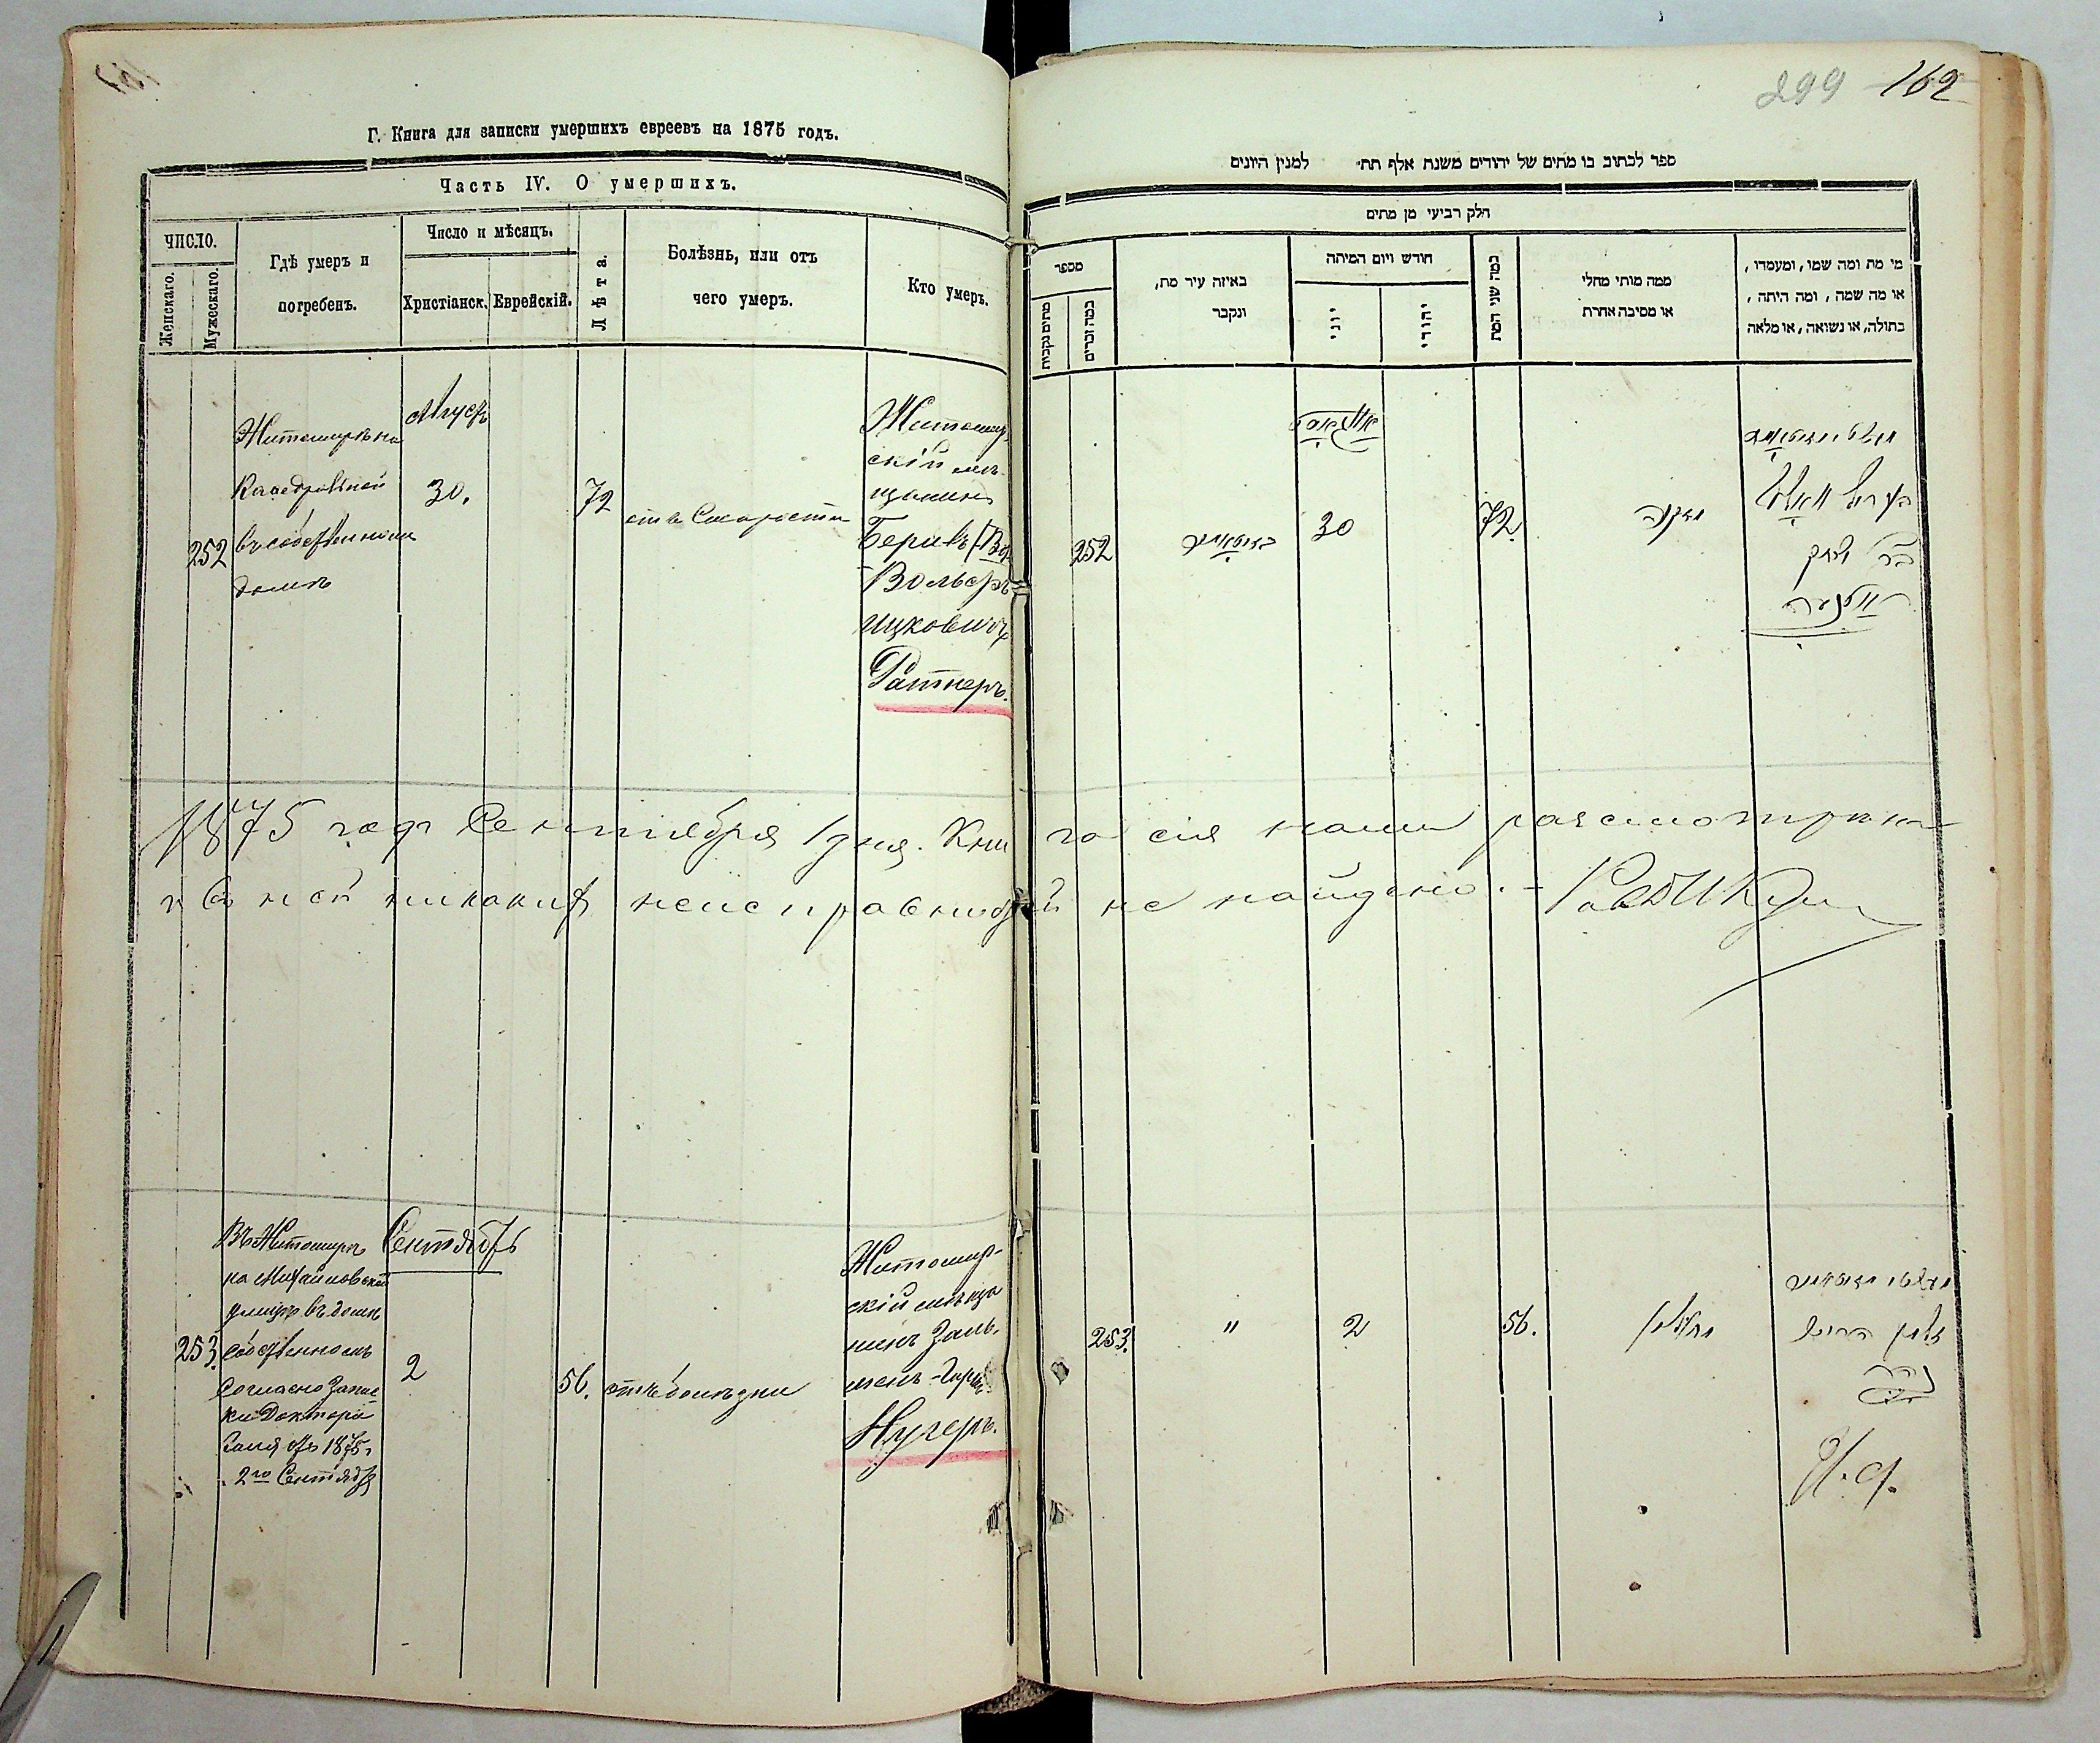 Г. Книга для записки умершихъ евреевъ на 1875 годъ.
Часть IV. О умершихъ.
ЧИСЛО.
Женскаго.
Мужескаго.
Гдѣ умеръ и
погребенъ.
Число и мѣсяцъ.
Христіанск.
Еврейскій.
Лѣта.
Болѣзнь, или отъ
чего умеръ.
Кто умеръ.
252
Житомирѣ на
Кафедральной
въ собственномъ
домѣ
Августъ
30.
72
отъ Старости
Житомир-
скій мѣ-
щанинъ
Берикъ
Вольфъ
Ицковичъ
Ратнеръ.
1875 года Сентября 1 дня. Книга сія нами разсмотрена
и въ ней никакихъ неисправностей не найдено. –
253.
Въ Житомирѣ
на Михайловской
улицѣ въ домѣ
собственномъ
Согласно Запис
ки Доктора
1875 г
2го Сентября
Сентябрь
2
56.
отъ болѣзни
Житомир-
скій мѣща
нинъ Заль-
менъ-Герш
Нугеръ.
299 162
ספר לכתוב בו מתים של יהודים משנת אלף תת׳ למנין היונים
חלק רביעי מן מתים
מספר
מתים נקבות
במה זכרים
באיזה עיר מת,
ונקבר
חודש ויום המיתה
יוני
יהודי
כמה שני המת
ממה מותו מחלי
או מסיבה אחרת
מי מת ומה שמו, ומעמדו,
או מה שמה, ומה היתה,
בתולה, או נשואה, או מלאה
252
בזיטאמיר
30
72
מזקנה
253.
"
2
56.